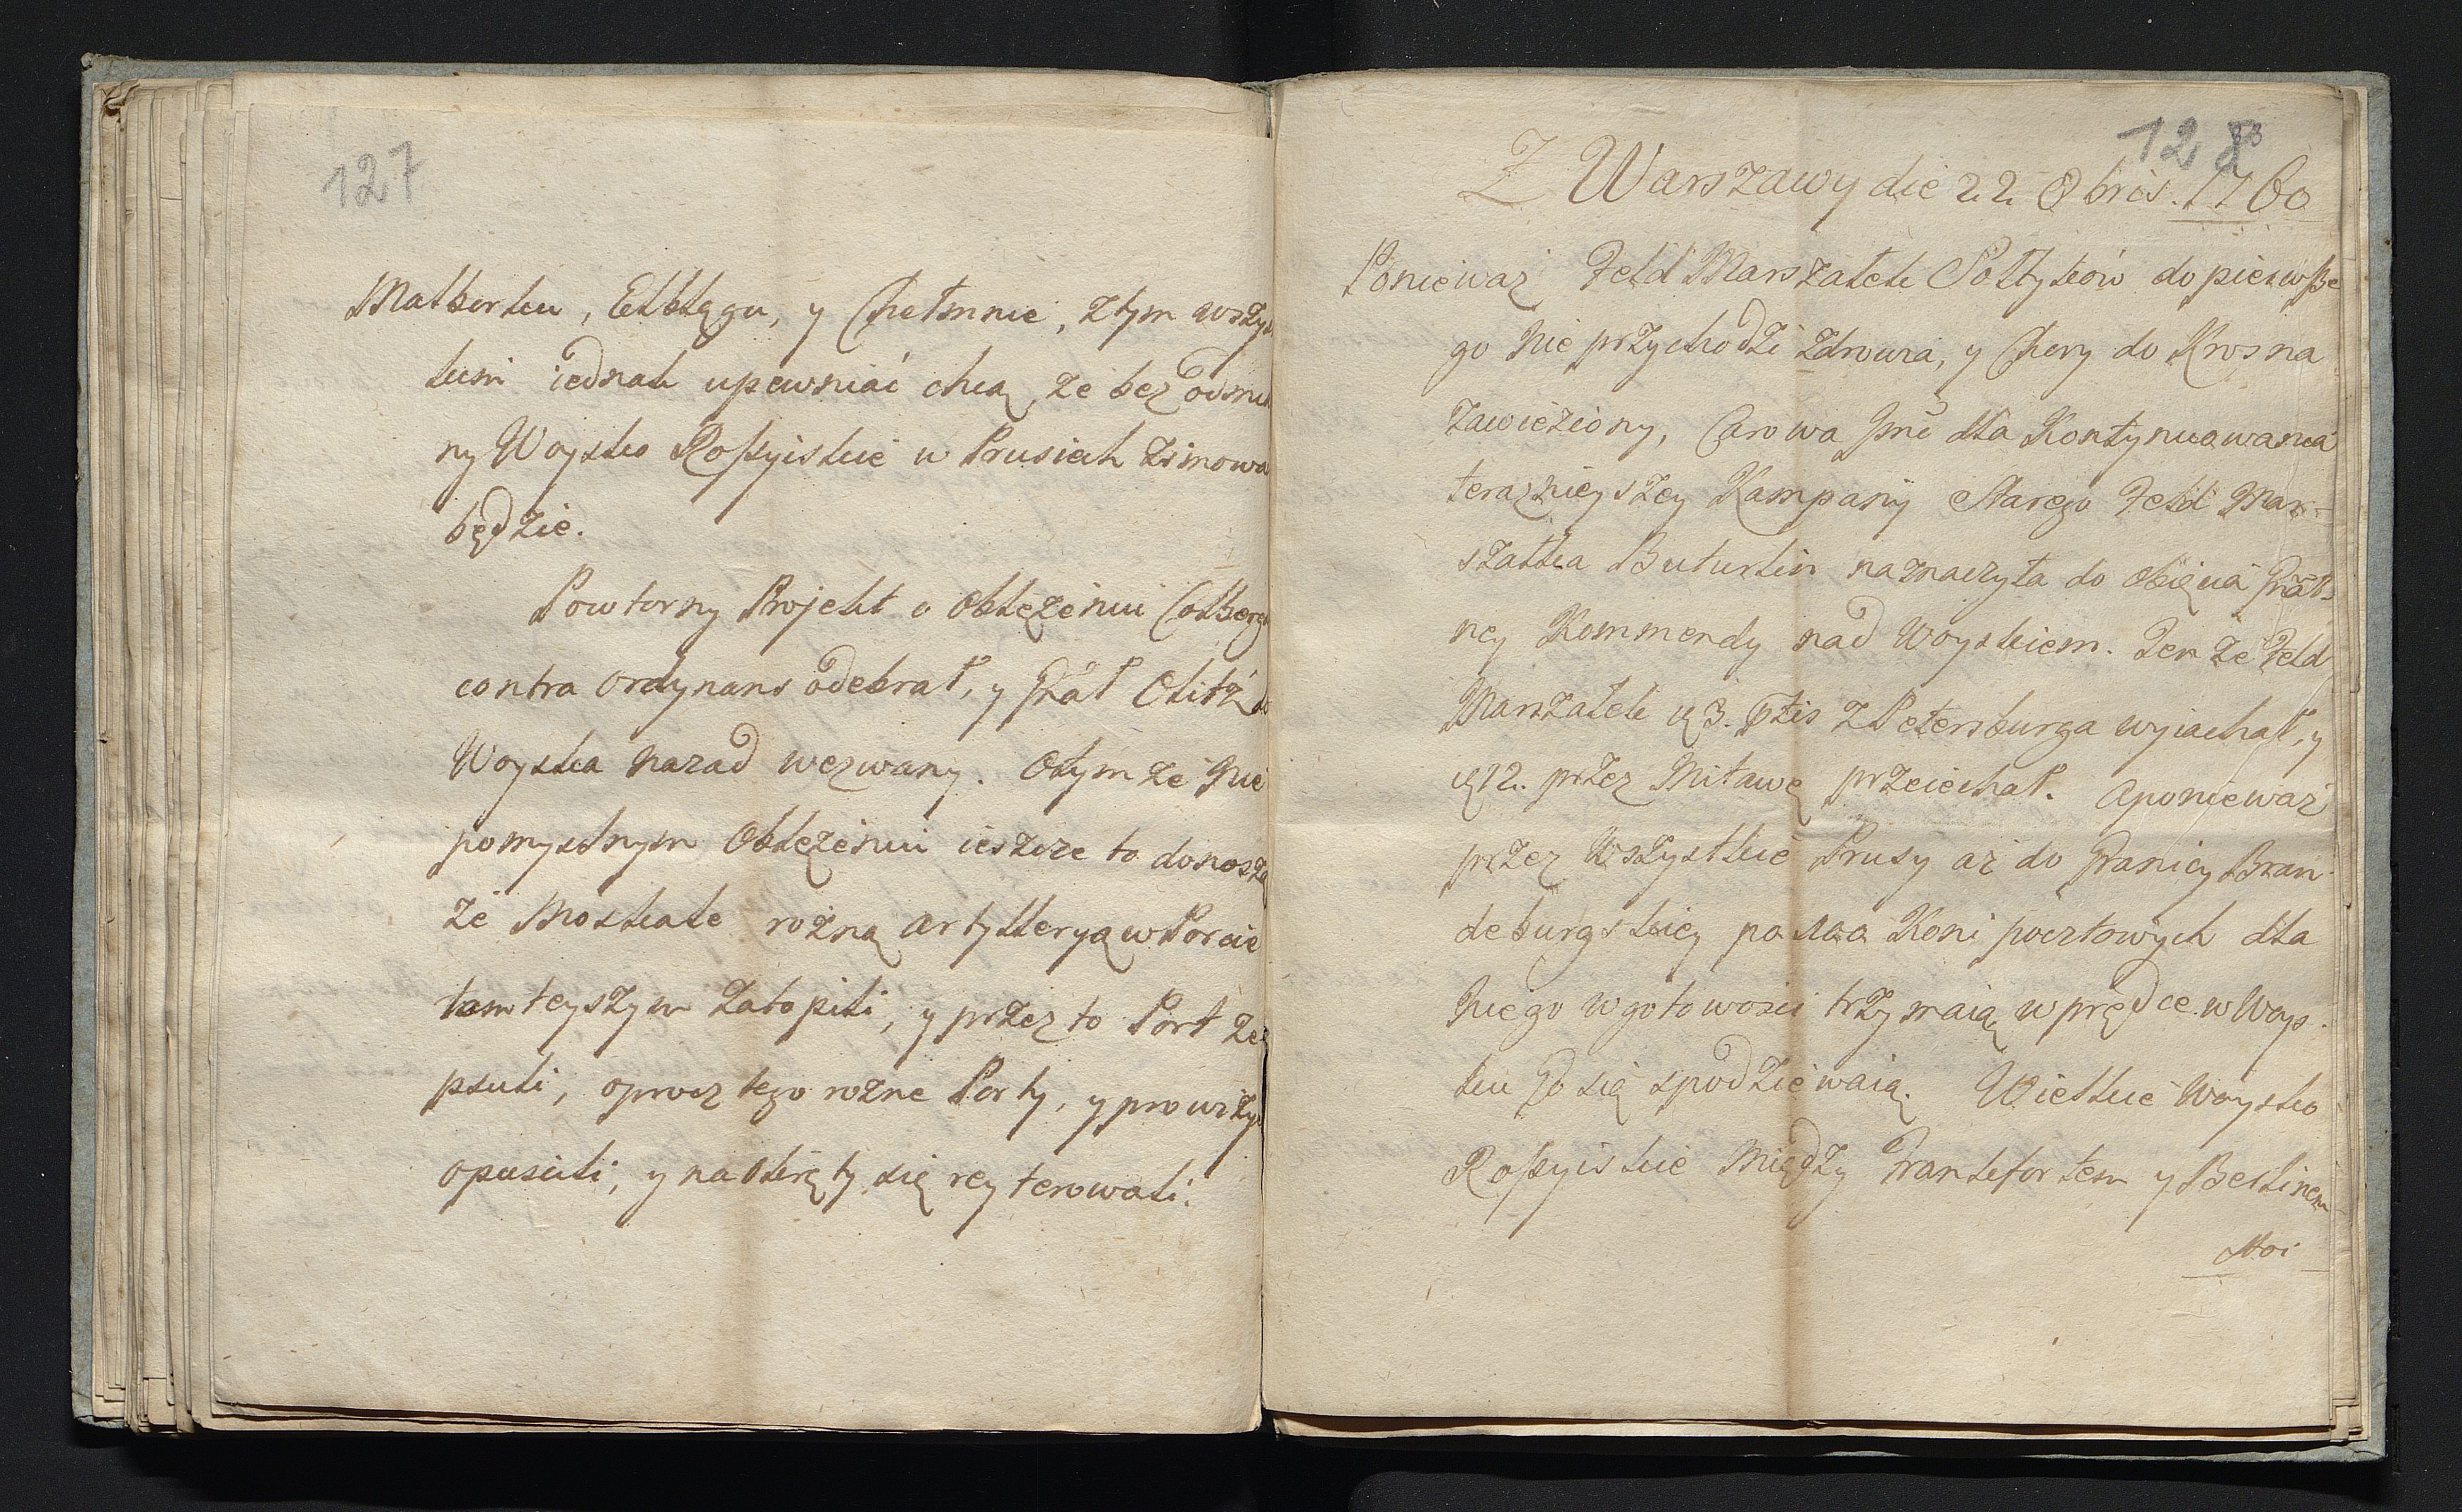 127
Malborku, Elblągu, y Chełmnie, z tym wszys
kim iednak upewniać chcą, że bez odmia
ny Woysko Rossyiskie w Prusiech zimowa
będzie.
Powtorny Projekt o Oblężeniu Colberga
contra ordynans odebrał, y Gñał Olitz do
Woyska nazad wezwany. O tym że nie
pomyslnym Oblężeniu ieszcze to donoszą
że Moskale rożną artylleryą w Porcie
tamteyszym zatopili, y przez to Port ze
psuli, oprocz tego rożne Porty, y prowizye
opuscili, y na Okręty się reyterowali.
128
Z Warszawy die 22 8bris. 1760
Ponieważ Feld Marszałek Sołtykow do pierwsze
go nie przychodzi zdrowia, y Chory do Krosna
zawieziony, Carowa Jmć dla Kontynuowania
teraznieyszey Kampanij Starego Feld Mar-
szałka Buturlin naznaczyła do obięcia Gñał-
ney Kommendy nad Woyskiem. Ten że Feld
Marszałek 3. z Petersburga wyiachał, y
12. przez Mitawę przeiechał. A ponieważ
przez Wszystkie Prusy aż do Granicy Bran
deburgskiey po 100 Koni pocztowych dla
niego w gotowosci trzymaią, w prędce w Woys-
ku Go się spodziewaią. Wielkie Woysko
Rossyiskie między Frankfortem y Berlinem
Stoi